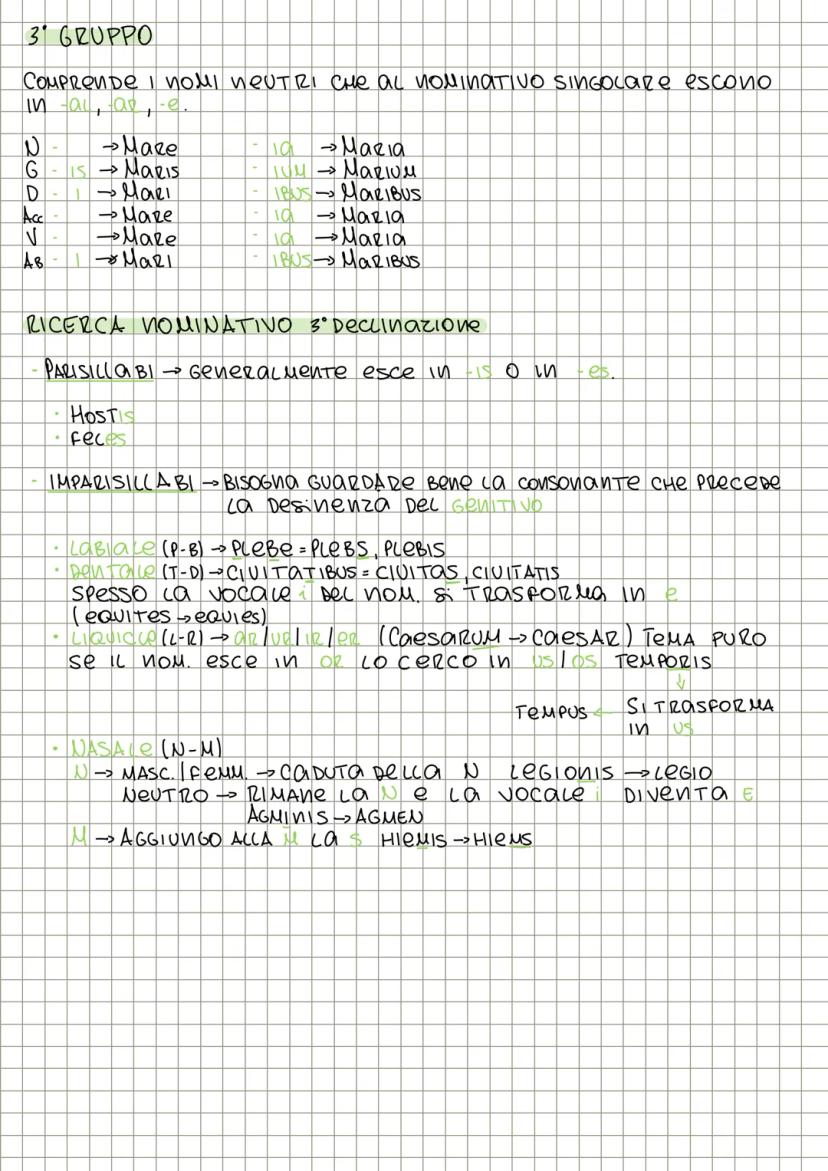 3° GRUPPO
COMPRENDE I NOMI NEUTRI CHE AL NOMINATIVO SINGOLARE ESCONO
IN -AL, -AR, -E.
N - → MARE - IA → MARIA
G - IS → MARIS - IUM → MARIUM
D - I → MARI - IBUS → MARIBUS
ACC - → MARE - IA → MARIA
V - → MARE - IA → MARIA
AB - I → MARI - IBUS → MARIBUS
RICERCA NOMINATIVO 3° DECLINAZIONE
- PARISILLABI → GENERALMENTE ESCE IN -IS O IN -ES.
· HOSTIS
· FECES
- IMPARISILLABI → BISOGNA GUARDARE BENE LA CONSONANTE CHE PRECEDE
LA DESINENZA DEL GENITIVO
· LABIALE (P-B) → PLEBE = PLEBS, PLEBIS
· DENTALE (T-D) → CIVITATIBUS = CIVITAS, CIVITATIS
SPESSO LA VOCALE i DEL NOM. SI TRASFORMA IN e
(EQUITES → EQUIES)
· LIQUIDE (L-R) → AR/UR/IR/ER (CAESARUM → CAESAR) TEMA PURO
SE IL NOM. ESCE IN OR LO CERCO IN US/OS TEMPORIS
↓
TEMPUS ← SI TRASFORMA
IN US
· NASALE (N-M)
N → MASC./FEMM. → CADUTA DELLA N LEGIONIS → LEGIO
NEUTRO → RIMANE LA N E LA VOCALE i DIVENTA E
AGMINIS → AGMEN
M → AGGIUNGO ALLA M LA S HIEMIS → HIEMS